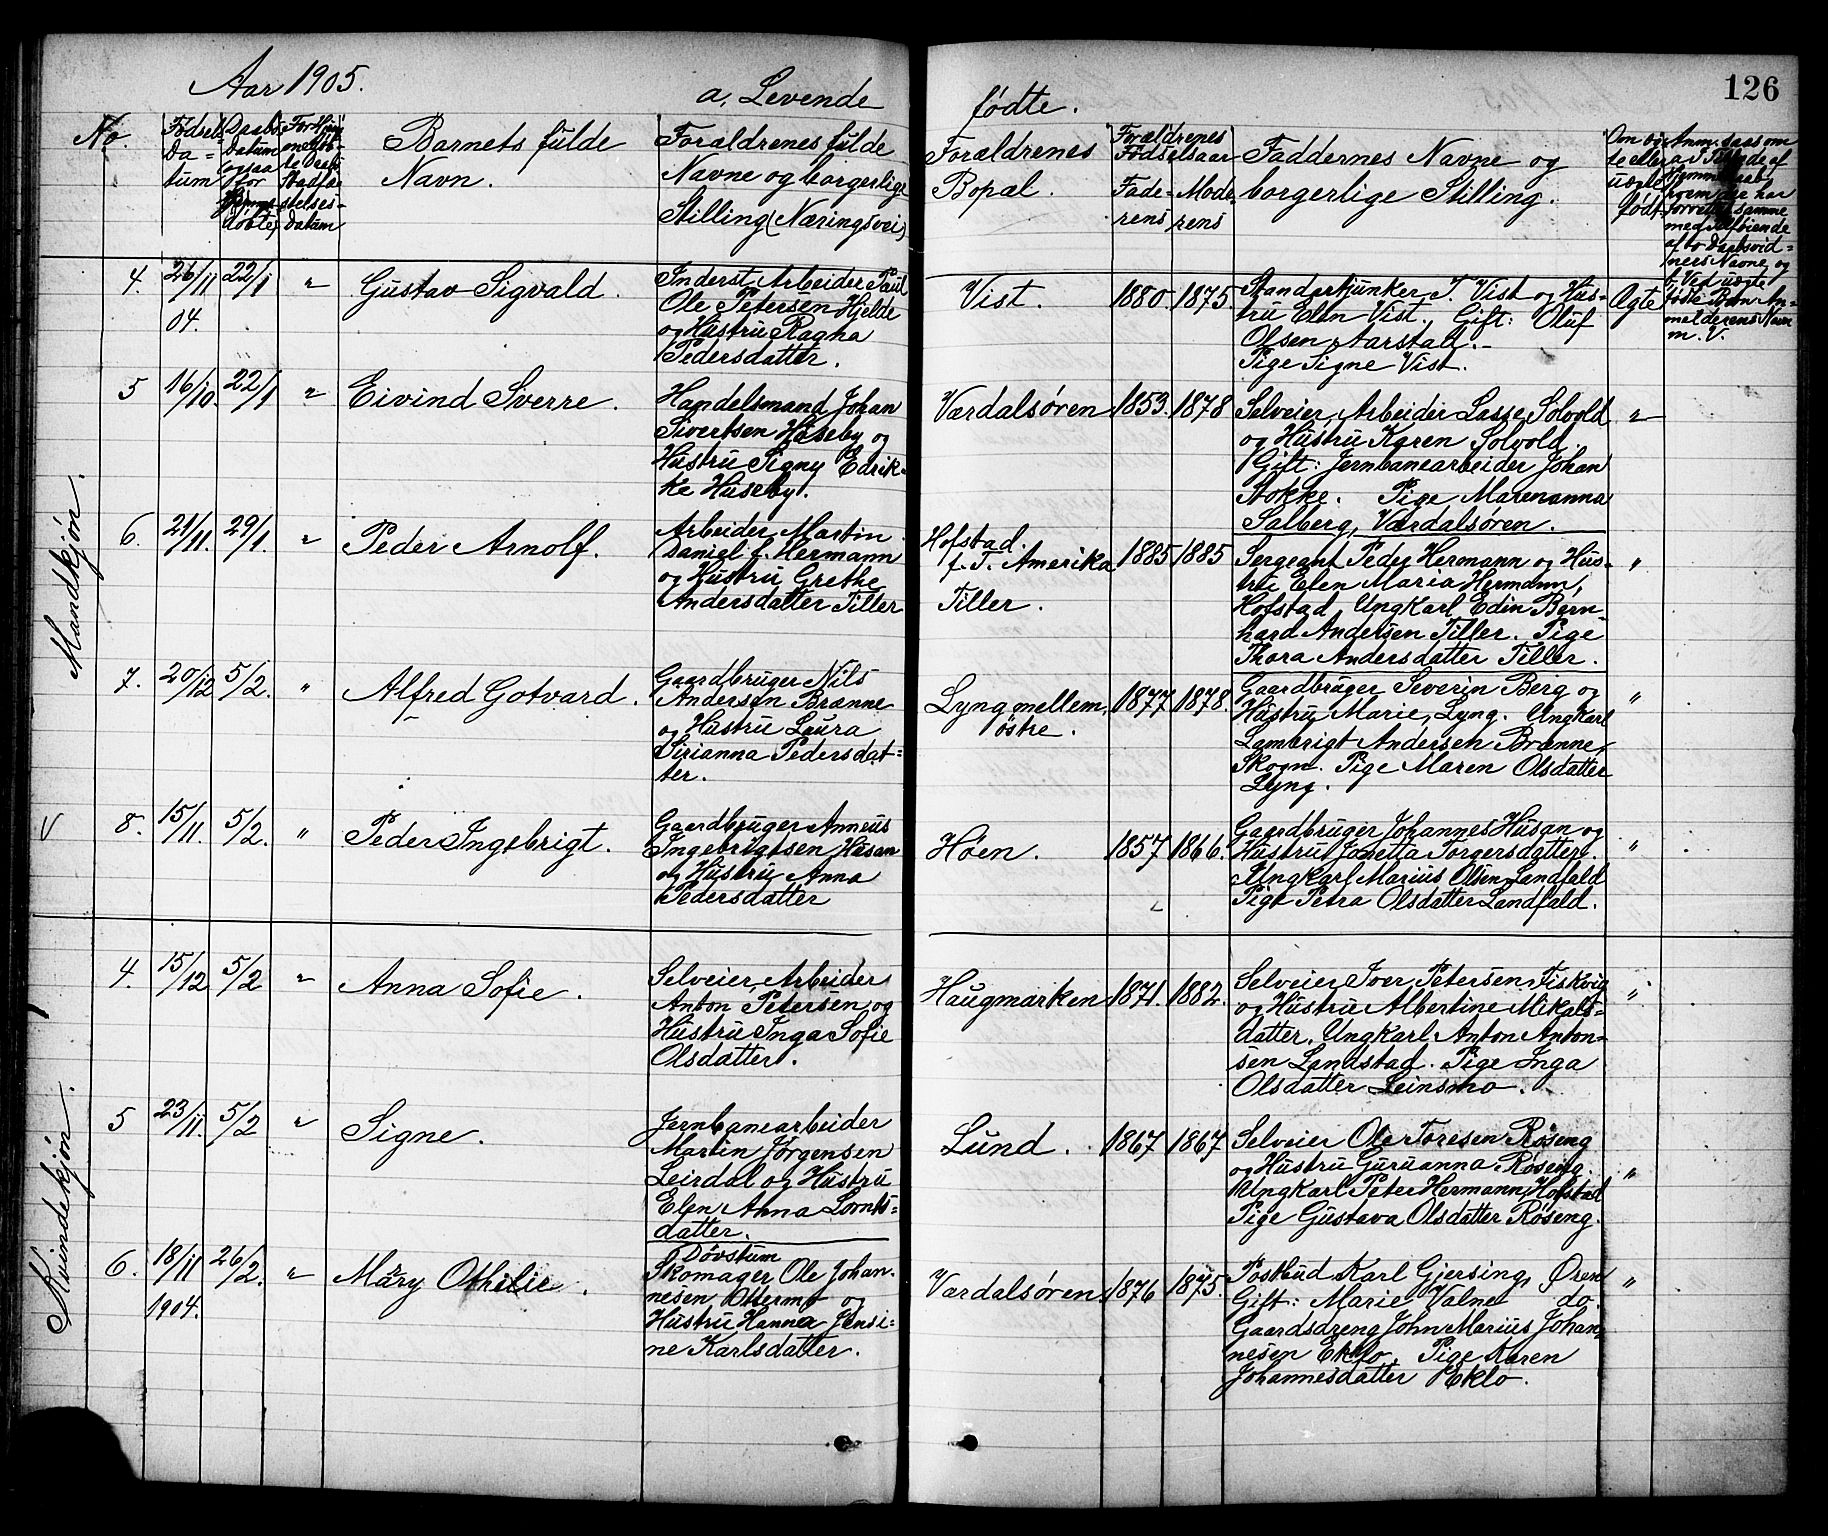 126
Aar 1905.
a, Levende
fødte.
No.
Fødsels
Da-
tum
Daabs
Datum
ogsaa
for
døbte,
Datum
Barnets fulde
Navn.
Forældrenes fulde
Navne og borgerlige
Stilling (Næringsvei)
Forældrenes
Bopæl.
Forældrenes
Fødselsaar
Fade-
rens
Mode
rens
Faddernes Navne og
borgerlige Stilling.
Om æg-
te eller
uægte
født.
Mandkjøn.
4. 26/11 04. 22/1 " Gustav Sigvald.
Inderst, Arbeider Paul
Ole Petersen Hjelde
og Hustru Ragna
Pedersdatter.
Vist. 1880. 1875.
Standerjunker J. Vist og Hus-
tru Elen Vist. Gift: Oluf
Olsen Aarstad.-
Pige Signe Vist.
Ægte
5 16/10. 22/1 " Eivind Sverre.
Handelsmand Johan
Sivertsen Huseby og
Hustru Signy Edrik-
ke Huseby.
Værdalsøren 1853. 1878
Selveier, Arbeider Lasse Solvold
og Hustru Karen Solvold.
Gift: Jernbanearbeider Johan
Stokke. Pige Marenanna
Salberg, Værdalsøren.
"
6. 21/11. 29/1. " Peder Arnolf.
Arbeider Martin
Daniel f. Hermann
og Hustru Grethe
Andersdatter Tiller
Hofstad.
f. T. Amerika
Tiller.
1885 1885
Sergeant Peder Hermann og Hus-
tru Elen Maria Hermann,
Hofstad, Ungkarl Edin Bern-
hard Andersen Tiller. Pige
Thora Andersdatter Tiller.
"
7. 20/12 5/2. " Alfred Gotvard.
Gaardbruger Nils
Andersen Brænne
og Hustru Laura
Sirianna Pedersdat-
ter.
Lyng mellem,
østre.
1877 1878.
Gaardbruger Severin Berg og
Hustru Marie, Lyng. Ungkarl
Lambrigt Andersen Brænne,
Skogn. Pige Maren Olsdatter
Lyng.
"
V 8. 15/11. 5/2. " Peder Ingebrigt.
Gaardbruger Anneus
Ingebrigtsen Husan
og Hustru Anna
Pedersdatter
Høen. 1857 1866.
Gaardbruger Johannes Husan og
Hustru Josetta Torgersdatter.
Ungkarl Marius Olsen Landfald
Pige Petra Olsdatter Landfald.
"
Kvindekjøn.
4. 15/12 5/2 " Anna Sofie.
Selveier, Arbeider
Anton Petersen og
Hustru Inga Sofie
Olsdatter.
Haugmarken 1871. 1882.
Selveier Iver Petersen Fiskvig
og Hustru Albertine Mikals-
datter, Ungkarl Anton Anton-
sen Landstad. Pige Inga
Olsdatter Leinsmo.
"
5 23/11. 5/2 " Signe.
Jernbanearbeider
Martin Jørgensen
Leirdal og Hustru
Elen Anna Lornts-
datter.
Lund. 1867 1867
Selveier Ole Toresen Røseng
og Hustru Guruanna Røseng.
Ungkarl Peter Hermann, Hofstad
Pige Gustava Olsdatter Røseng.
"
6. 18/11 1904. 26/2. " Mary Othelie.
Døvstum
Skomager Ole Johan-
nesen Ottermo og
Hustru Hanna Jensi-
ne Karlsdatter.
Værdalsøren. 1876 1875.
Postbud Karl Gjersing, Øren
Gift: Marie Valne do.
Gaardsdreng John Marius Johan-
nesen Eklo. Pige Karen
Johannesdatter Eklo.
"